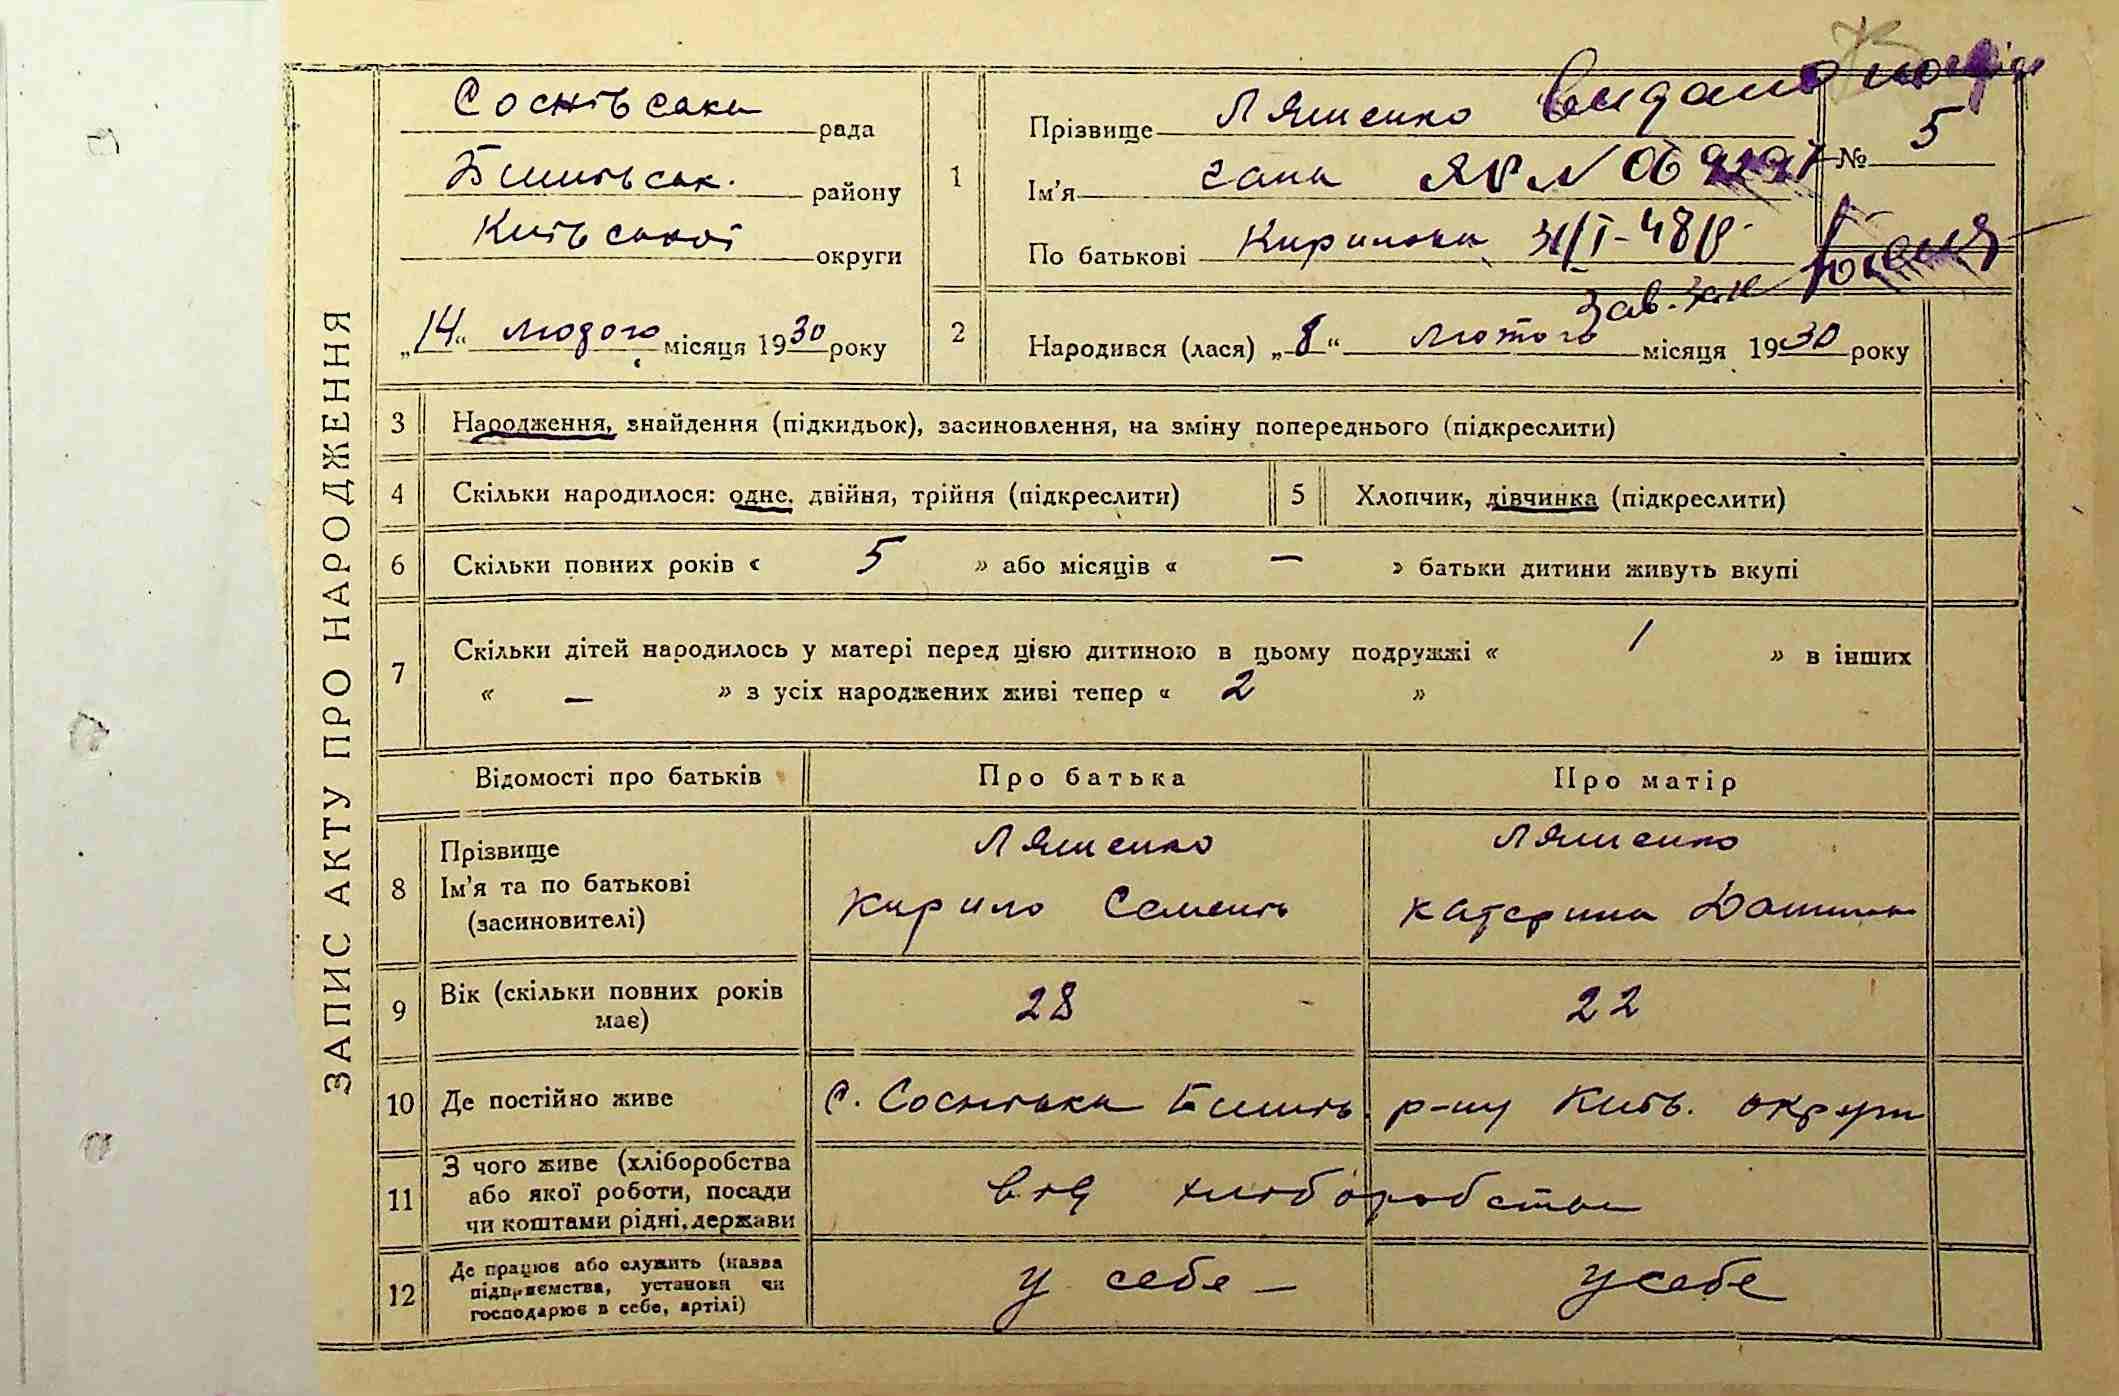 ЗАПИС АКТУ ПРО НАРОДЖЕННЯ
Соснівська рада
Бишівськ. району
Київської округи
„14“ лютого місяця 1930 року
1
Прізвище Ляшенко
Ім’я Гана
По батькові Кирилівна
видано
ЯР N 069
31/I-48р.
№ 5
2
Народився (лася) „8“ лютого місяця 1930 року
3 Народження, знайдення (підкидьок), засиновлення, на зміну попереднього (підкреслити)
4 Скільки народилося: одне, двійня, трійня (підкреслити)
5 Хлопчик, дівчинка (підкреслити)
6 Скільки повних років « 5 » або місяців « — » батьки дитини живуть вкупі
7 Скільки дітей народилось у матері перед цією дитиною в цьому подружжі « 1 » в інших
« — » з усіх народжених живі тепер « 2 »
Відомості про батьків Про батька Про матір
8 Прізвище
Ім’я та по батькові
(засиновителі)
Ляшенко
Кирило Семенів
Ляшенко
Катерина
9 Вік (скільки повних років
має)
28 22
10 Де постійно живе
с. Соснівка Бишів. р-ну Київ. округи
11 З чого живе (хліборобства
або якої роботи, посади
чи коштами рідні, держави
від хліборобства
12 Де працює або служить (назва
підприємства, установи чи
господарює в себе, артілі)
у себе — у себе